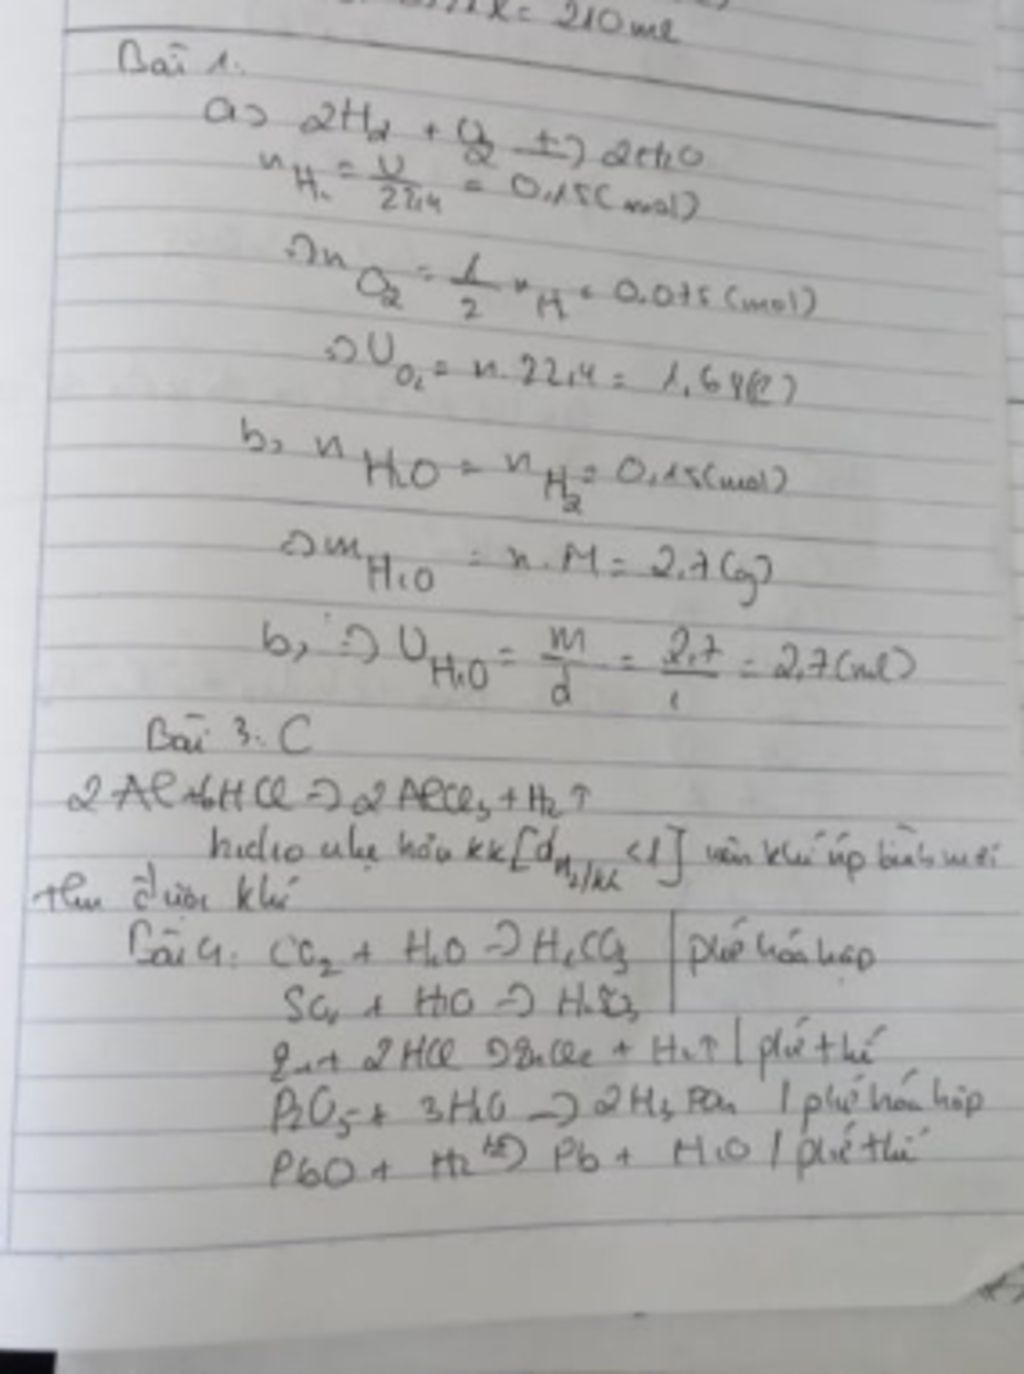 = 210 ml
Bài 1.
a, 2H2 + O2 t→ 2H2O
nH2 = V/22,4 = 0,15 (mol)
=> nO2 = 1/2 nH = 0.075 (mol)
=> VO2 = n.22,4 = 1,64 (l)
b, nH2O = nH2 = 0,15 (mol)
=> mH2O = n.M = 2.7 (g)
b, => VH2O = m/d = 2,7/1 = 2,7 (ml)
Bài 3. C
2Al + 6HCl => 2AlCl3 + H2↑
hidro nhẹ hơn kk [dH2/kk <1] nên khi úp bình mới
thu được khí
Bài 4: CO2 + H2O => H2CO3 | pứ hóa hợp
SO2 + H2O => H2SO3
Zn + 2HCl => ZnCl2 + H2↑ | pứ thế
P2O5 + 3H2O => 2H3PO4 | pứ hóa hợp
PbO + H2 t°=> Pb + H2O | pứ thế